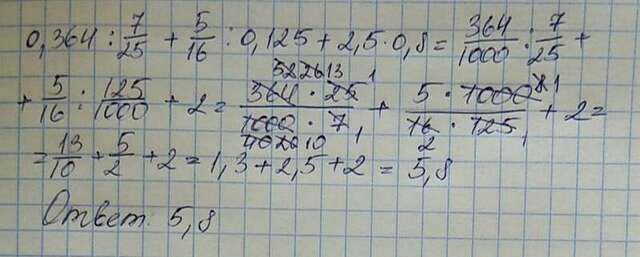 0,364 : 7/25 + 5/16 : 0,125 + 2,5 · 0,8 = 364/1000 : 7/25 +
+ 5/16 : 125/1000 + 2 = 364 · 25/1000 · 7 + 5 · 1000/16 · 125 + 2 =
= 13/10 + 5/2 + 2 = 1,3 + 2,5 + 2 = 5,8
Ответ. 5,8